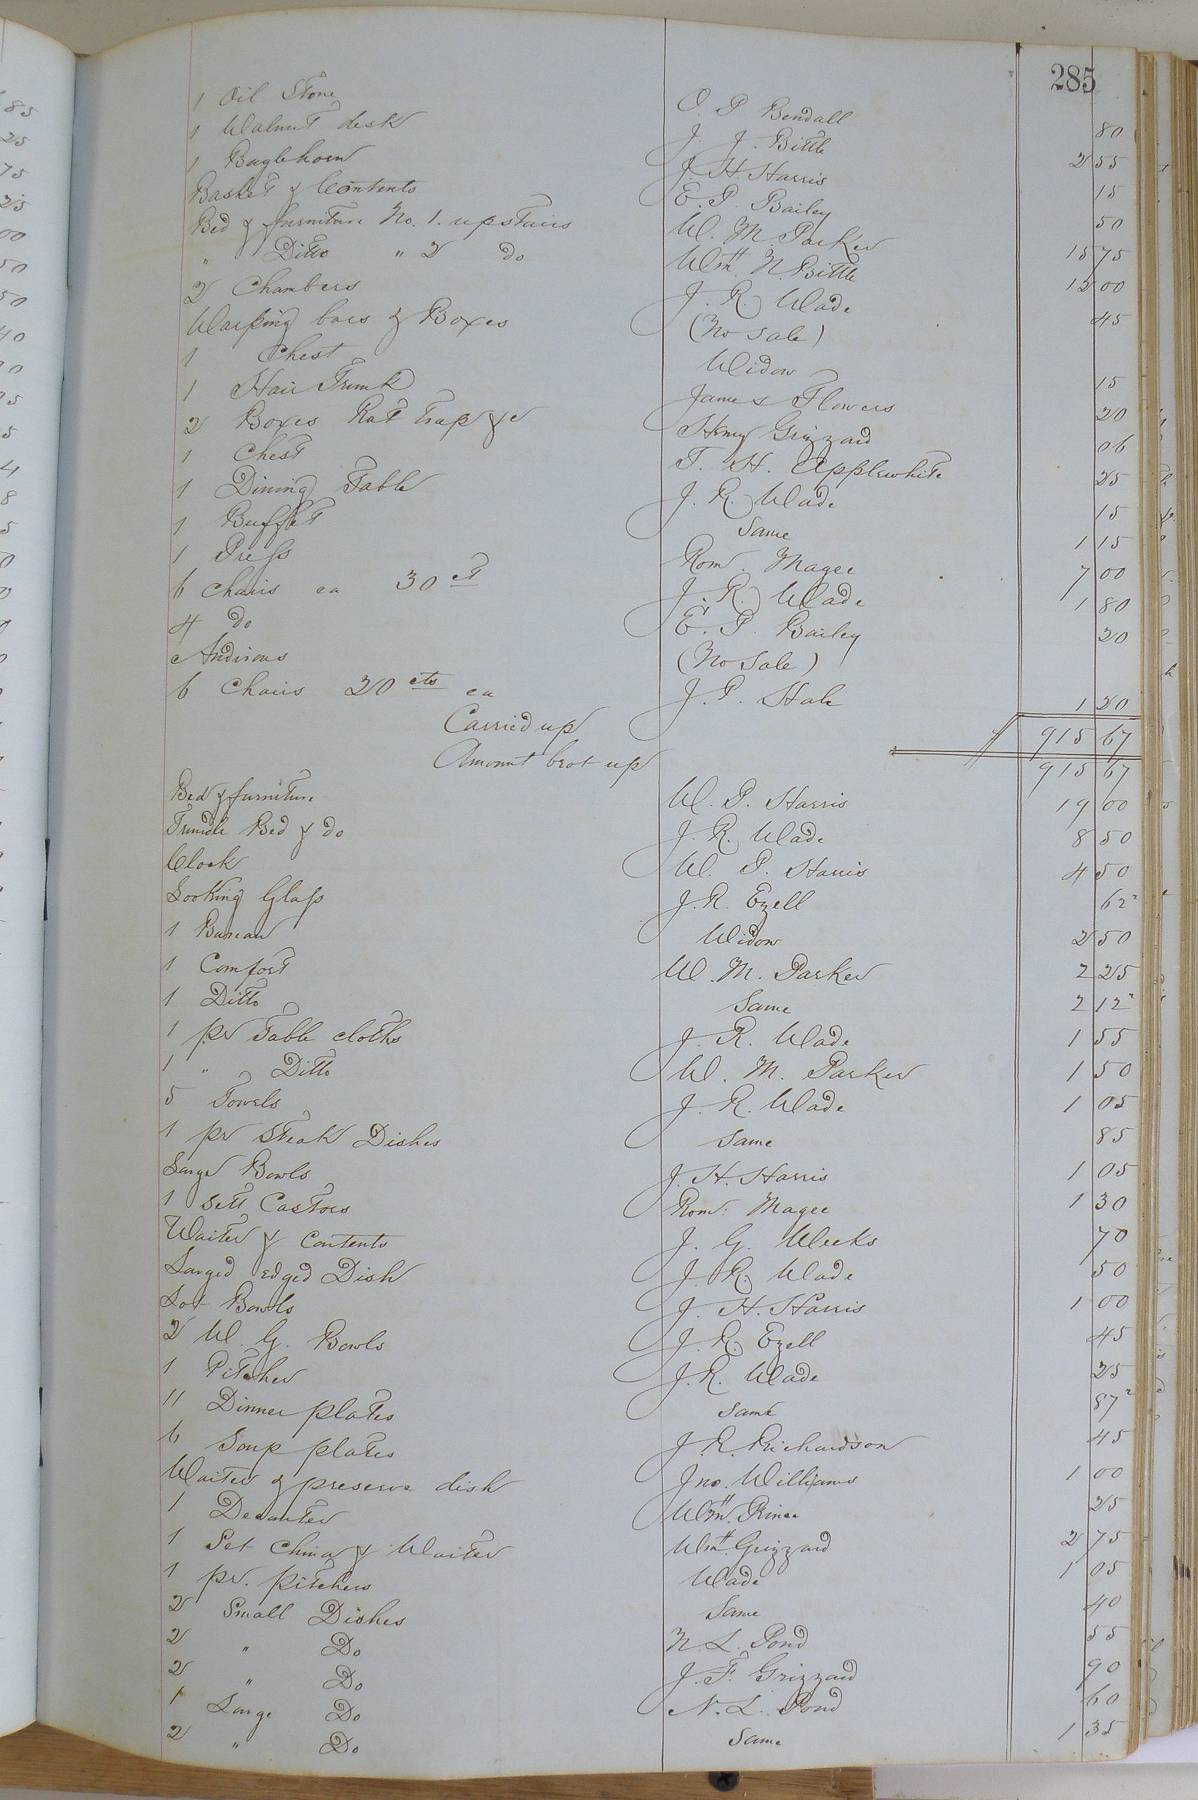 285
1 Oil Stone O. P. Bendall 80
1 Walnut desk J. J. Bittle 2 55
1 Buglehorn J H Harris 15
Basket & Contents E. P. Bailey 50
Bed & furniture No. 1. upstairs W. M. Parker 15 75
" Ditto " 2 do Wm. N. Bittle 12 00
2 Chambers J. R. Wade 45
Warping bars & Boxes (No Sale)
1 Chest Widow 15
1 Hair Trunk James Flowers 20
2 Boxes Rat trap &c Henry Grizzard 06
1 Chest T. H. Applewhite 25
1 Dining Table J. R. Wade 15
1 Buffet Same 1 15
1 Press Rom. Magee 7 00
6 Chairs ea 30 ct J. R. Wade 1 80
4 do E. P. Bailey 20
Andirons (No Sale)
6 Chairs 20 cts ea J. P. Hale 1 20
Carried up 915 67
Amount brot up 915 67
Bed & furniture W. P. Harris 19 00
Trundle Bed & do J. R. Wade 8 50
Clock W. P. Harris 4 50
Looking Glass J. R. Ezell 62²
1 Bureau Widow 2 50
1 Comfort W. M. Parker 2 25
1 Ditto Same 2 12²
1 pr Table cloths J. R. Wade 1 55
1 " Ditto W. M. Parker 1 50
5 Towels J. R. Wade 1 05
1 pr Steak Dishes Same 85
Large Bowls J. H. Harris 1 05
1 Sett Castors Rom: Magee 1 30
Waiter & Contents J. G. Weeks 70
Larged Edged Dish J. R. Wade 50
Lot Bowls J. H. Harris 1 00
2 W. G. Bowls J. R. Ezell 45
1 Pitcher J. R. Wade 25
11 Dinner plates Same 87²
6 Soup plates J. R. Richardson 45
Waiter & preserve dish Jno. Williams 1 00
1 Decanter Wm. Prince 25
1 Set China & Waiter Wm. Grizzard 2 75
1 pr. pitchers Wade 1 05
2 Small Dishes Same 40
2 " Do N. L. Pond 55
2 " Do J. F. Grizzard 90
1 Large Do N. L. Pond 60
2 " Do Same 1 35